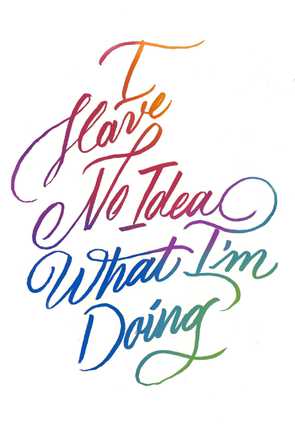 I
Have
No Idea
What I'm
Doing